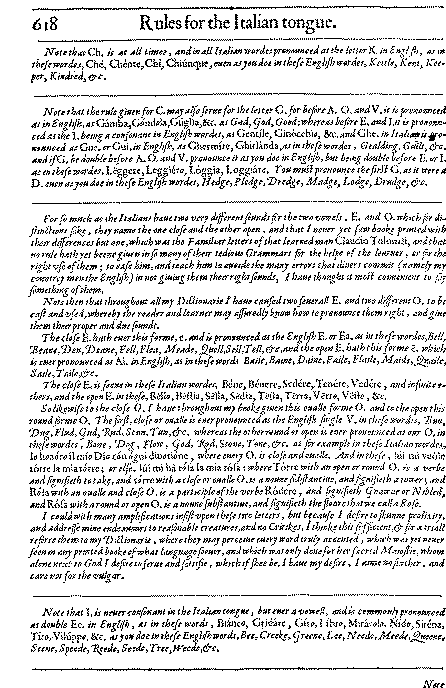 618 Rules for the Italian tongue.
Note that Ch. is at all times, and in all Italian wordes pronounced as the letter K. in English, as in
these wordes, Ché, Chênte, Chi, Chiúnque, euen as you doe in these English wordes, Kettle, Kent, Kee-
per, Kindred, &c.
Note that the rule giuen for C. may also serue for the letter G. for before A. O. and V. it is pronounced
as in English, as Gámba, Góndola, Gúglia, &c. as God, Good; whereas before E. and I. it is pronoun-
ced as the I. being a consonant in English wordes, as Gentíle, Ginócchia, &c. and Ghe. in Italian is pro-
nounced as Gue, or Gui, in English, as Ghermíre, Ghirlánda, as in these wordes, Gealding, Guilt, &c.
and if G. be double before A. O. and V. pronounce it as you doe in English, but being double before E. or I.
as in these wordes, Léggere, Leggiéro, Lóggia, Loggiáre, You must pronounce the first G. as it were a
D. euen as you doe in these English wordes, Hedge, Pledge, Dredge, Madge, Lodge, Drudge, &c.
For so much as the Italians haue two very different sounds for the two vowels. E. and O. which for di-
stinctions sake, they name the one close and the other open, and that I neuer yet saw booke printed with
their differences but one, which was the Familiar letters of that learned man Claudio Tolomei, and that
no rule hath yet beene giuen in so many of their tedious Grammars for the helpe of the learner, or for the
right vse of them; to ease him, and teach him to auoide the many errors that diuers commit (namely my
countrymen the English) in not giuing them their right sounds, I haue thought it most conuenient to say
something of them.
Note then that throughout all my Dictionarie I haue caused two seuerall E. and two different O. to be
cast and vsed, whereby the reader and learner may assuredly know how to pronounce them right, and giue
them their proper and due sounds.
The close E. hath euer this forme, e. and is pronounced as the English E. or Ea. as in these wordes, Bell,
Beane, Den, Deane, Fell, Flea, Meade, Quell, Sell, Tell, &c. and the open E. hath this forme which
is euer pronounced as Ai. in English, as in these wordes Baile, Baine, Daine, Faile, Flaile, Maids, Quaile,
Saile, Taile, &c.
The close E. is seene in these Italian wordes, Béne, Bénere, Sedére, Tenére, Vedére, and infinite o-
thers, and the open E. in these,
So likewise to the close O. I haue throughout my booke giuen this ouall forme O. and to the open this
round forme O. The first, close or ouall is euer pronounced as the English single V. in these wordes, Bun,
Dug, Flud, Gud, Rud, Stun, Tun, &c. whereas the other round or open is euer pronounced as our O. in
these wordes, Bone, Dog, Flow, God, Rod, Stone, Tone, &c. as for example in these Italian wordes,
Io honóro il mío Dío con ógni diuotióne, where euery O. is close and ouall. And in these,
or else. where Tórre with an open or round O. is a verbe
and signifieth to take, and tórre with a close or ouall O. is a noune substantiue, and signifieth a tower, and
Rósa with an ouall and close O. is a participle of the verbe Ródere, and signifieth Gnawne or Nibled,
and Rósa with a round or open O. is a noune substantiue, and signifieth the floure that we call a Rose.
I could with many amplifications insist vpon these two letters, but because I desire to shunne prolixity,
and addresse mine endeuours to reasonable creatures, and no Critikes, I thinke this sufficient, & for a triall
referre them to my Dictionarie, where they may perceiue euery word truly accented, which was yet neuer
seene in any printed booke of what language soeuer, and which was only done for her sacred Maiestie, whom
alone next to God I desire to serue and satisfie, which if so I be, I haue my desire, I aime no further, and
care not for the vulgar.
Note that I, is neuer consonant in the Italian tongue, but euer a vowell, and is commonly pronounced
as double Ee. in English, as in these words, Biánco, Gridáre, Gíso, Líbro, Mirácolo, Nído, Siréna,
Tíro, Vilúppo, &c. as you doe in these English wordes, Bee, Creeke, Greene, Lee, Neede, Meede, Queene,
Seene, Speede, Reede, Seede, Tree, Weede, &c.
Note